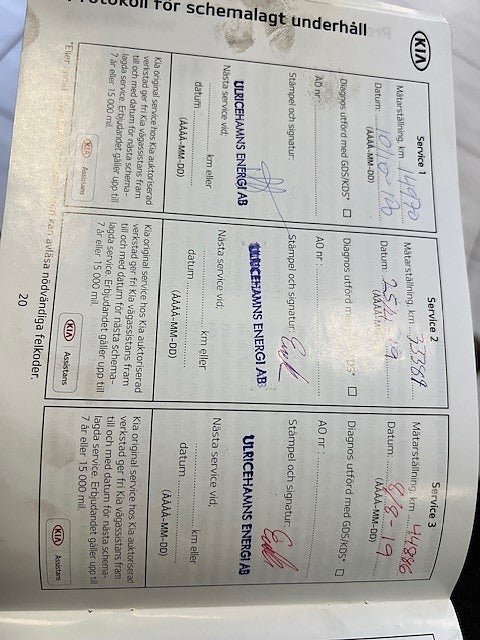 Protokoll för schemalagt underhåll
KIA
Service 1
Mätarställning, km 14970
Datum:
(ÅÅÅÅ-MM-DD)
Diagnos utförd med GDS/KDS*
AO nr :
Stämpel och signatur:
ULRICEHAMNS ENERGI AB
Nästa service vid;
km eller
datum
(ÅÅÅÅ-MM-DD)
Kia original service hos Kia auktoriserad
verkstad ger fri Kia vägassistans fram
till och med datum för nästa schema-
lagda service. Erbjudandet gäller upp till
7 år eller 15 000 mil.
KIA Assistans
Service 2
Mätarställning, km 33389
Datum: 25/4 -19
(ÅÅÅÅ-MM-DD)
Diagnos utförd med GDS/KDS*
AO nr :
Stämpel och signatur:
ULRICEHAMNS ENERGI AB
Nästa service vid;
km eller
datum
(ÅÅÅÅ-MM-DD)
Kia original service hos Kia auktoriserad
verkstad ger fri Kia vägassistans fram
till och med datum för nästa schema-
lagda service. Erbjudandet gäller upp till
7 år eller 15 000 mil.
KIA Assistans
Service 3
Mätarställning, km 44886
Datum: 8/8-19
(ÅÅÅÅ-MM-DD)
Diagnos utförd med GDS/KDS*
AO nr :
Stämpel och signatur:
ULRICEHAMNS ENERGI AB
Nästa service vid;
km eller
datum
(ÅÅÅÅ-MM-DD)
Kia original service hos Kia auktoriserad
verkstad ger fri Kia vägassistans fram
till och med datum för nästa schema-
lagda service. Erbjudandet gäller upp till
7 år eller 15 000 mil.
KIA Assistans
kan avläsa nödvändiga felkoder.
20